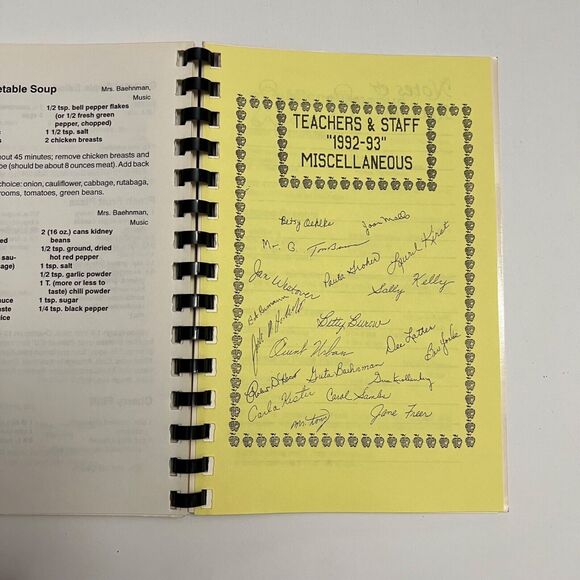 etable Soup
Mrs. Baehnman,
Music
1/2 tsp. bell pepper flakes
(or 1/2 fresh green
pepper, chopped)
1 1/2 tsp. salt
2 chicken breasts
out 45 minutes; remove chicken breasts and
be (should be about 8 ounces meat). Add back
choice: onion, cauliflower, cabbage, rutabaga,
rooms, tomatoes, green beans.
Mrs. Baehnman,
Music
2 (16 oz.) cans kidney
beans
1/2 tsp. ground, dried
hot red pepper
1 tsp. salt
1/2 tsp. garlic powder
1 T. (more or less to
taste) chili powder
1 tsp. sugar
1/4 tsp. black pepper
sau-
age)
auce
aste
uice
TEACHERS & STAFF
"1992-93"
MISCELLANEOUS
Betsy Oehlke
Joan Mells
Mr. B.
Laurel Kirst
Jan Westover
Paula Groher
Sally Kelly
Betty Burow
Aunt Urban
Dee Luther
Greta Baehnman
Carla Kester
Carol
Mr. Tony
Jane Freer